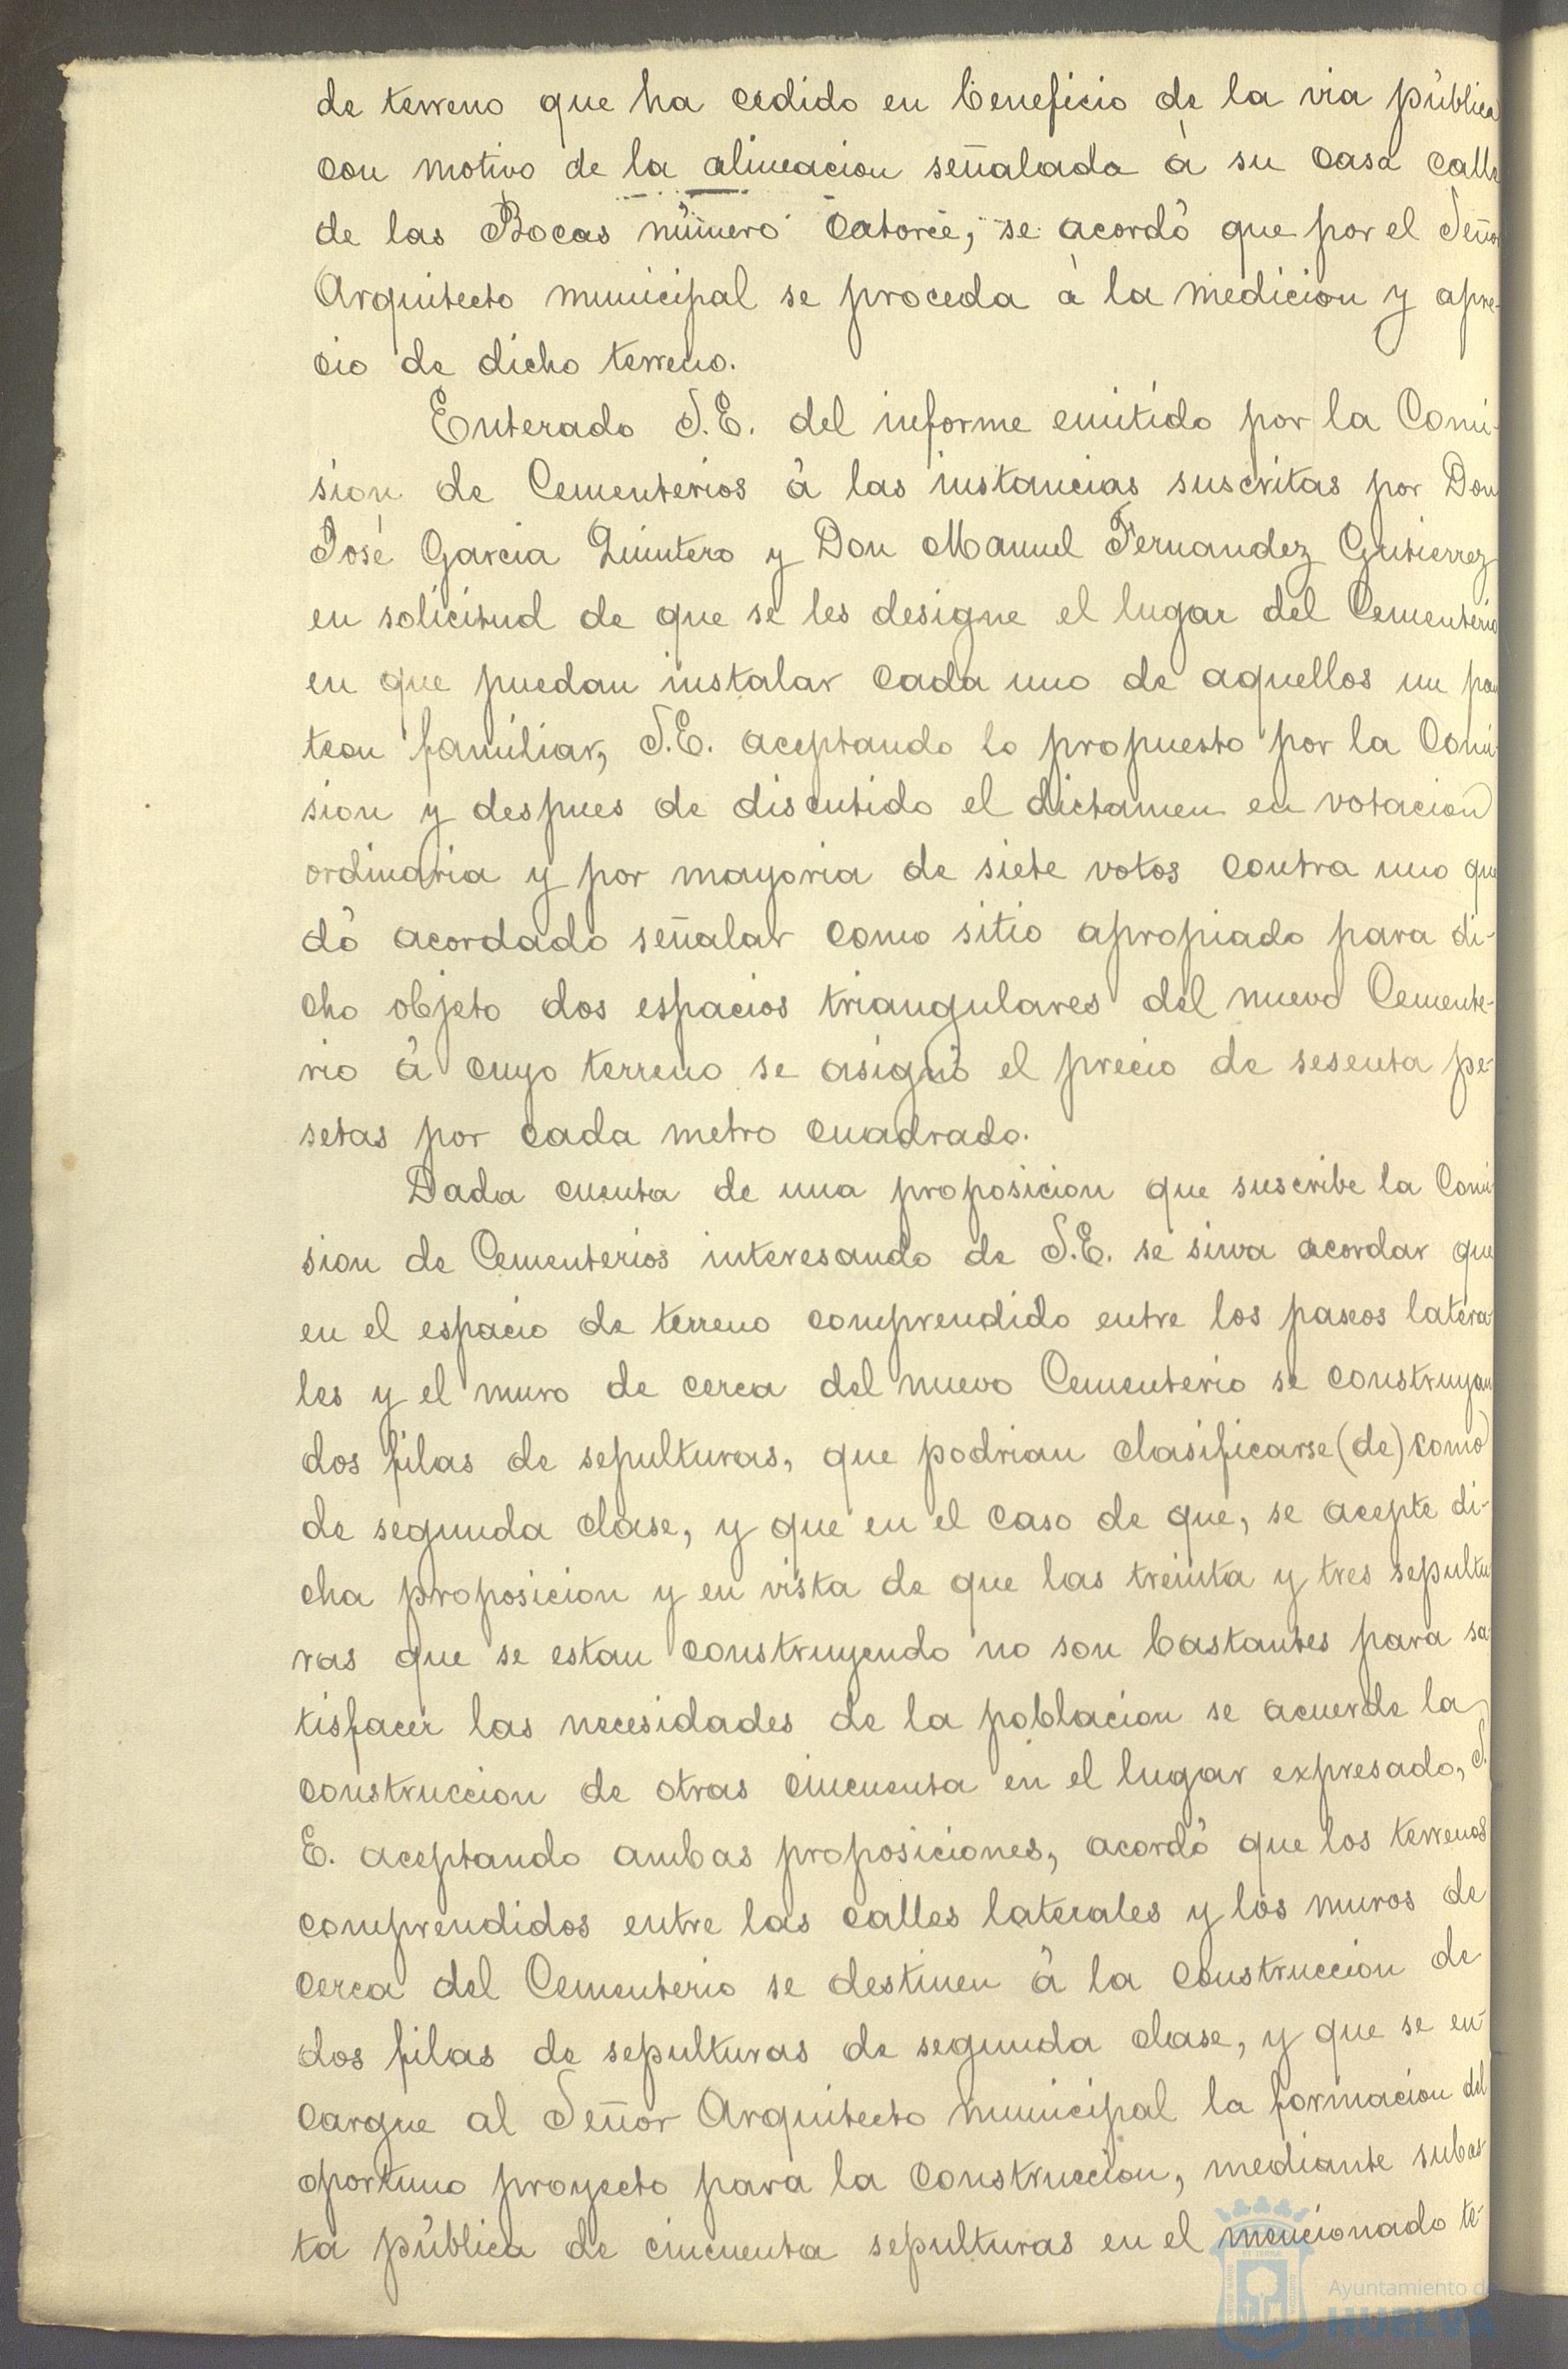 de terreno que ha cedido en beneficio de la via pública
con motivo de la alineacion señalada á su casa calle
de las Bocas número catorce, se acordó que por el Señor
Arquitecto municipal se proceda á la medicion y apre-
cio de dicho terreno.
Enterado S.E. del informe emitido por la Comi-
sion de Cementerios á las instancias suscritas por Don
José Garcia Quintero y Don Manuel Fernandez Gutierrez
en solicitud de que se les designe el lugar del Cementerio
en que puedan instalar cada uno de aquellos un pan
teon familiar, S.E. aceptando lo propuesto por la Comi-
sion y despues de discutido el dictamen en votacion
ordinaria y por mayoria de siete votos contra uno que
dó acordado señalar como sitio apropiado para di-
cho objeto dos espacios triangulares del nuevo Cemente-
rio á cuyo terreno se asignó el precio de sesenta pe-
setas por cada metro cuadrado.
Dada cuenta de una proposicion que suscribe la Comi
sion de Cementerios interesando de S.E. se sirva acordar que
en el espacio de terreno comprendido entre los paseos latera-
les y el muro de cerca del nuevo Cementerio se construyan
dos filas de sepulturas, que podrian clasificarse (de) como
de segunda clase, y que en el caso de que, se acepte di-
cha proposicion y en vista de que las treinta y tres sepultu
ras que se estan construyendo no son bastantes para sa-
tisfacer las necesidades de la poblacion se acuerde la
construccion de otras cincuenta en el lugar expresado, S.
E. aceptando ambas proposiciones, acordó que los terrenos
comprendidos entre las calles laterales y los muros de
cerca del Cementerio se destinen á la construccion de
dos filas de sepulturas de segunda clase, y que se en-
cargue al Señor Arquitecto municipal la formacion del
oportuno proyecto para la construccion, mediante subas-
ta pública de cincuenta sepulturas en el mencionado te-
Ayuntamiento de
HUELVA